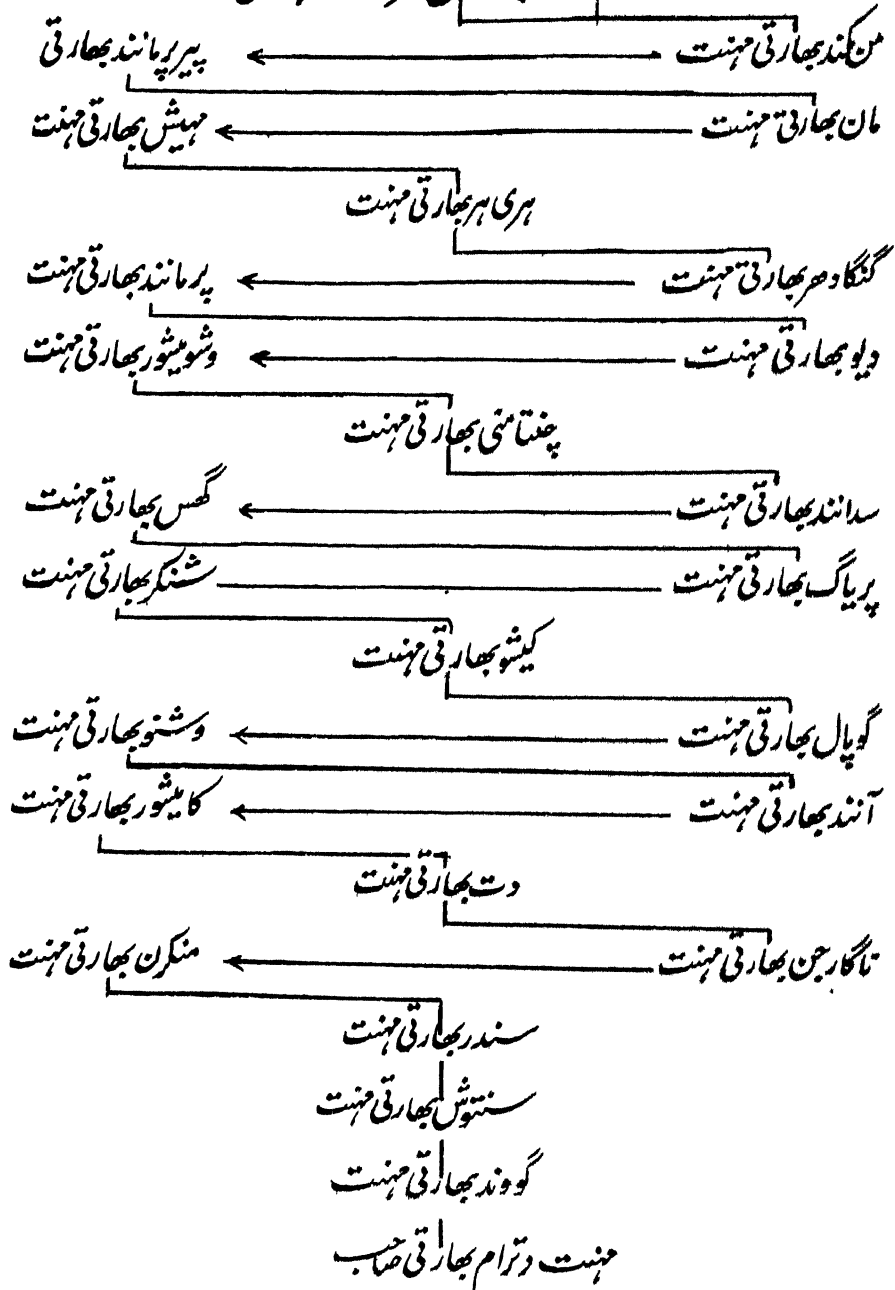 من مکند بھارتی مہنت پیر پرمانند بھارتی
مان بھارتی مہنت مہیش بھارتی مہنت
ہری ہر بھارتی مہنت
گنگا دھر بھارتی مہنت پرمانند بھارتی مہنت
دیو بھارتی مہنت وشویشور بھارتی مہنت
چنتامنی بھارتی مہنت
سدانند بھارتی مہنت گھس بھارتی مہنت
پریاگ بھارتی مہنت شنکر بھارتی مہنت
کیشو بھارتی مہنت
گوپال بھارتی مہنت وشنو بھارتی مہنت
آنند بھارتی مہنت کامیشور بھارتی مہنت
دت بھارتی مہنت
تاگارجن بھارتی مہنت منکرن بھارتی مہنت
سندر بھارتی مہنت
سنتوش بھارتی مہنت
گووند بھارتی مہنت
مہنت دترام بھارتی صاحب